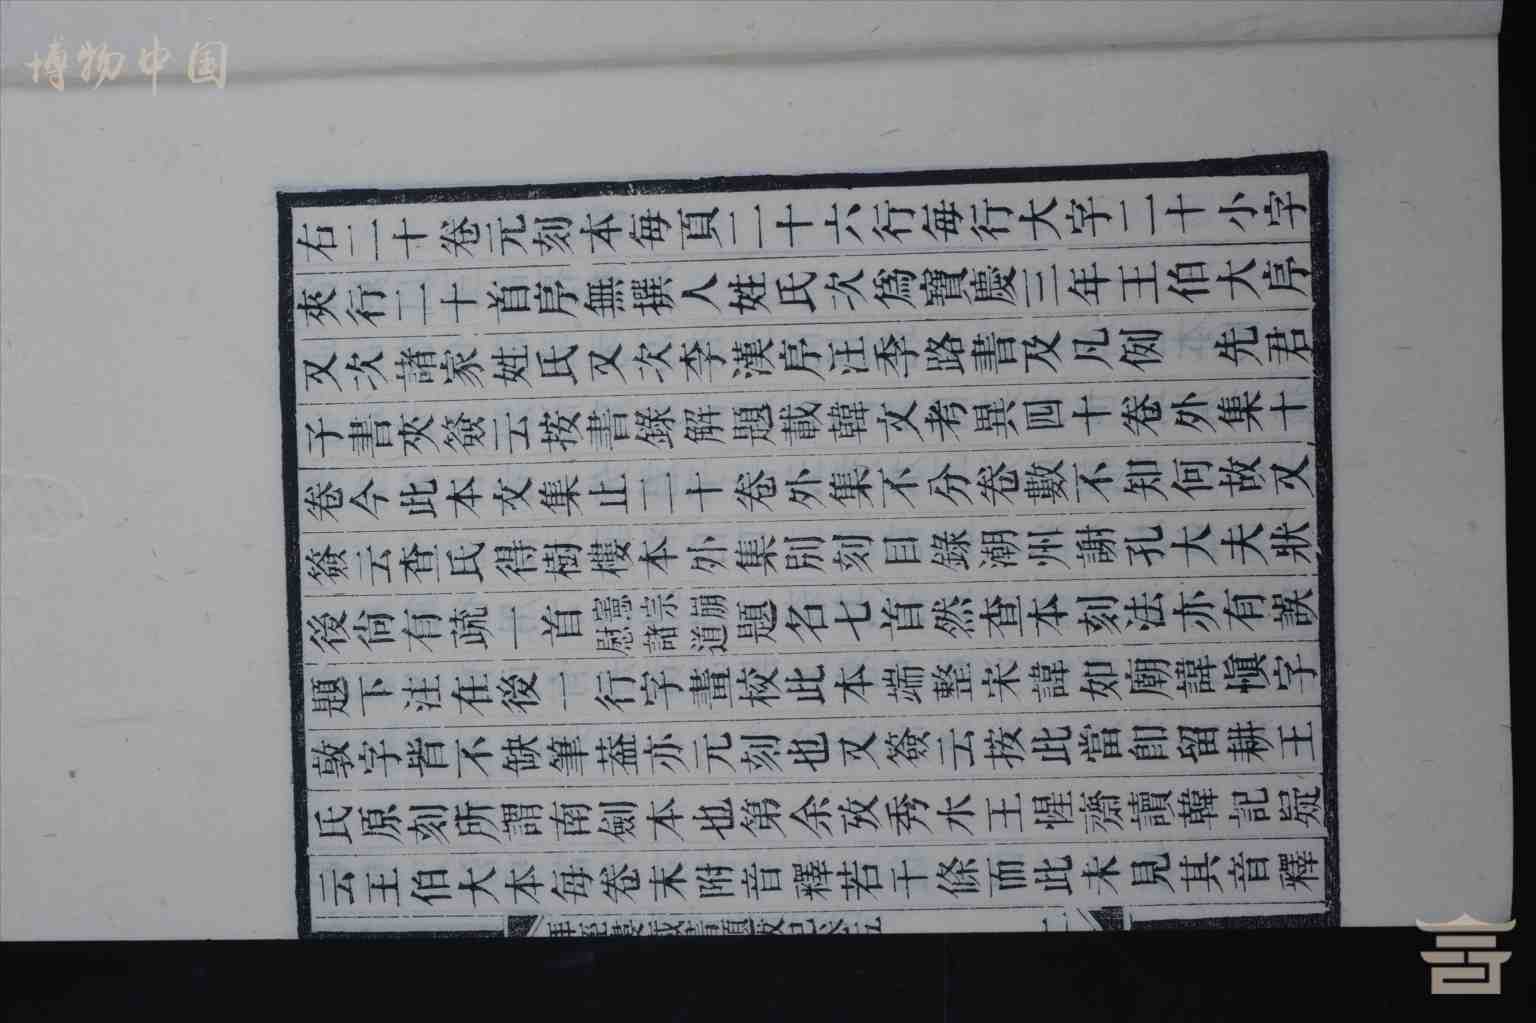 博物中国
右二十卷元刻本每頁二十六行每行大字二十小字
夾行二十首序無撰人姓氏次為寶慶三年王伯大序
又次諸家姓氏又次李漢序汪季路書及凡例 先君
子書夾簽云按書錄解題載韓文考異四十卷外集十
卷今此本文集止二十卷外集不分卷數不知何故又
簽云查氏得樹樓本外集別刻目錄潮州謝孔大夫狀
後尚有疏一首憲宗崩慰諸道題名七首然查本刻法亦有誤
題下注在後一行字畫校此本端整宋諱如廟諱愼字
敦字皆不缺筆葢亦元刻也又簽云按此當卽留耕王
氏原刻所謂南劍本也第余攷秀水王惺齋讀韓記疑
云王伯大本每卷末附音釋若干條而此未見其音釋